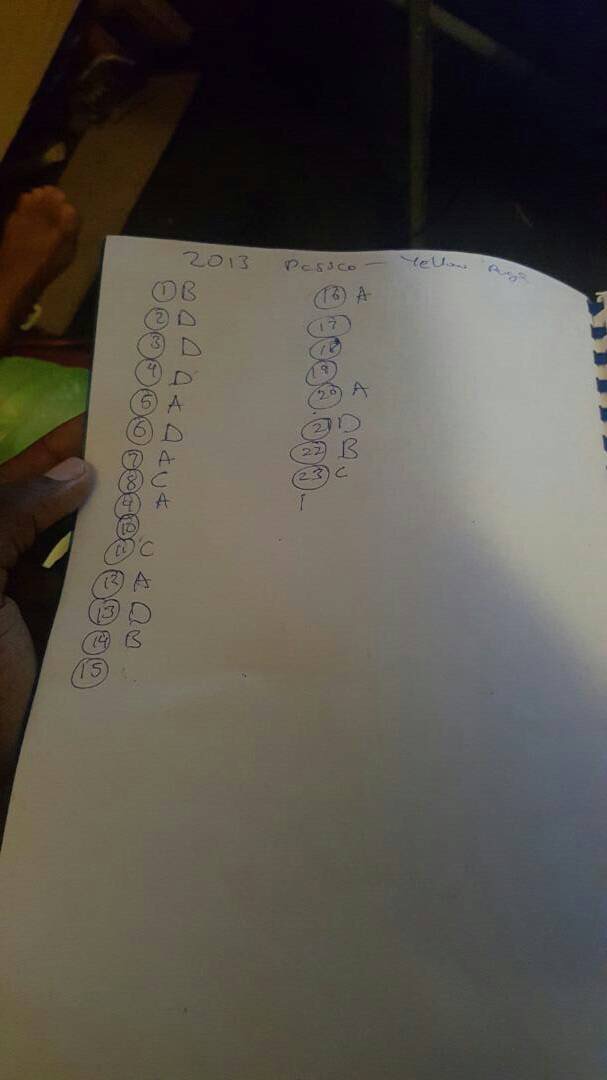 2013 Passco - Yellow Page
① B
② D
③ D
④ D
⑤ A
⑥ D
⑦ A
⑧ C
⑨ A
⑩
⑪ C
⑫ A
⑬ D
⑭ B
⑮
⑯ A
⑰
⑱
⑲
⑳ A
㉑ D
㉒ B
㉓ C